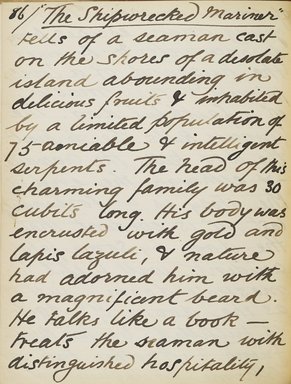 86/ "The Shipwrecked Mariner"
tells of a seaman cast
on the shores of a desolate
island abounding in
delicious fruits & inhabited
by a limited population of
75 amiable & intelligent
serpents. The head of this
charming family was 30
cubits long. His body was
encrusted with gold and
lapis lazuli, & nature
had adorned him with
a magnificent beard.
He talks like a book —
treats the seaman with
distinguished hospitality,